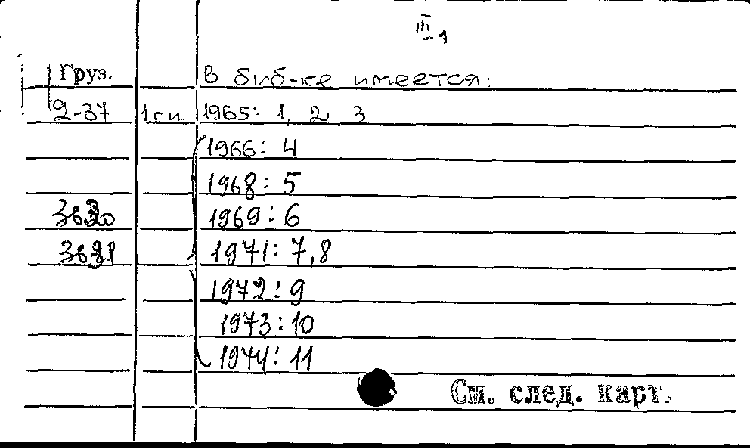 III
Груз. В биб-ке имеется:
2-37 1965: 1, 2, 3
1966: 4
1968: 5
3620 1969: 6
1971: 7,8
1972: 9
1973: 10
1974: 11
См. след. карт.